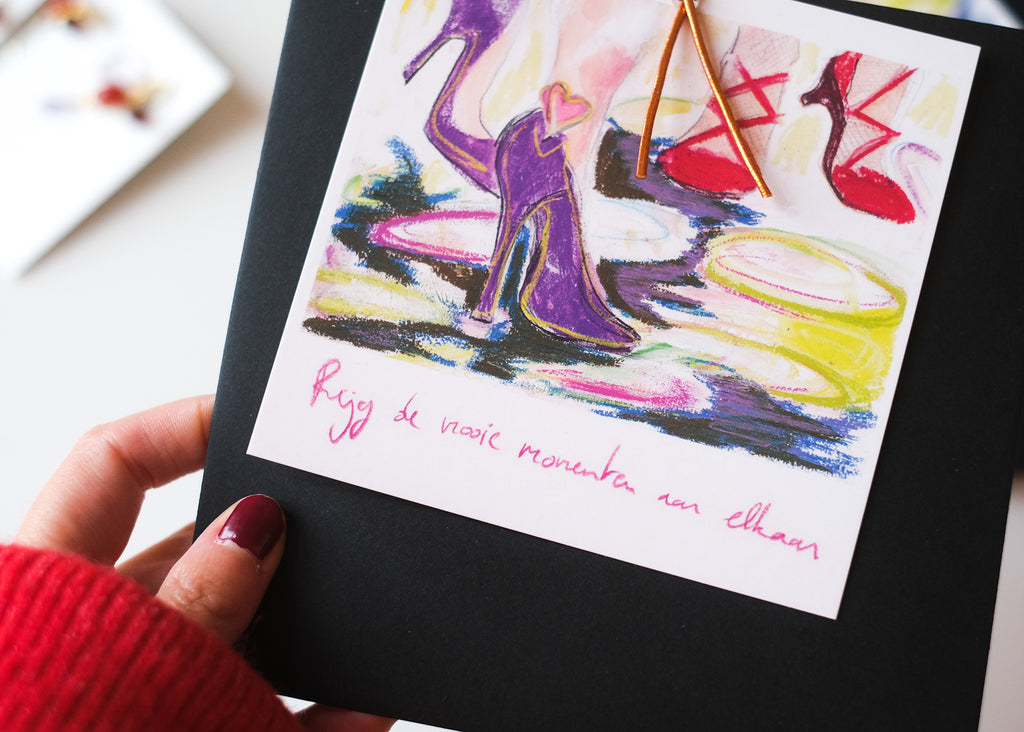 Rijg de mooie momenten aan elkaar